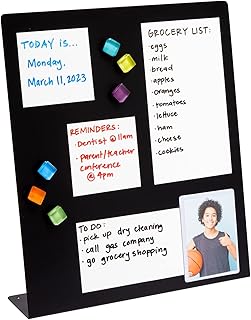 TODAY is...
Monday,
March 11, 2023
GROCERY LIST:
• eggs
• milk
• bread
• apples
• oranges
• tomatoes
• lettuce
• ham
• cheese
• cookies
REMINDERS:
• Dentist @ 11am
• parent/teacher
conference
@ 4pm
TO DO:
• pick up dry cleaning
• call gas company
• go grocery shopping